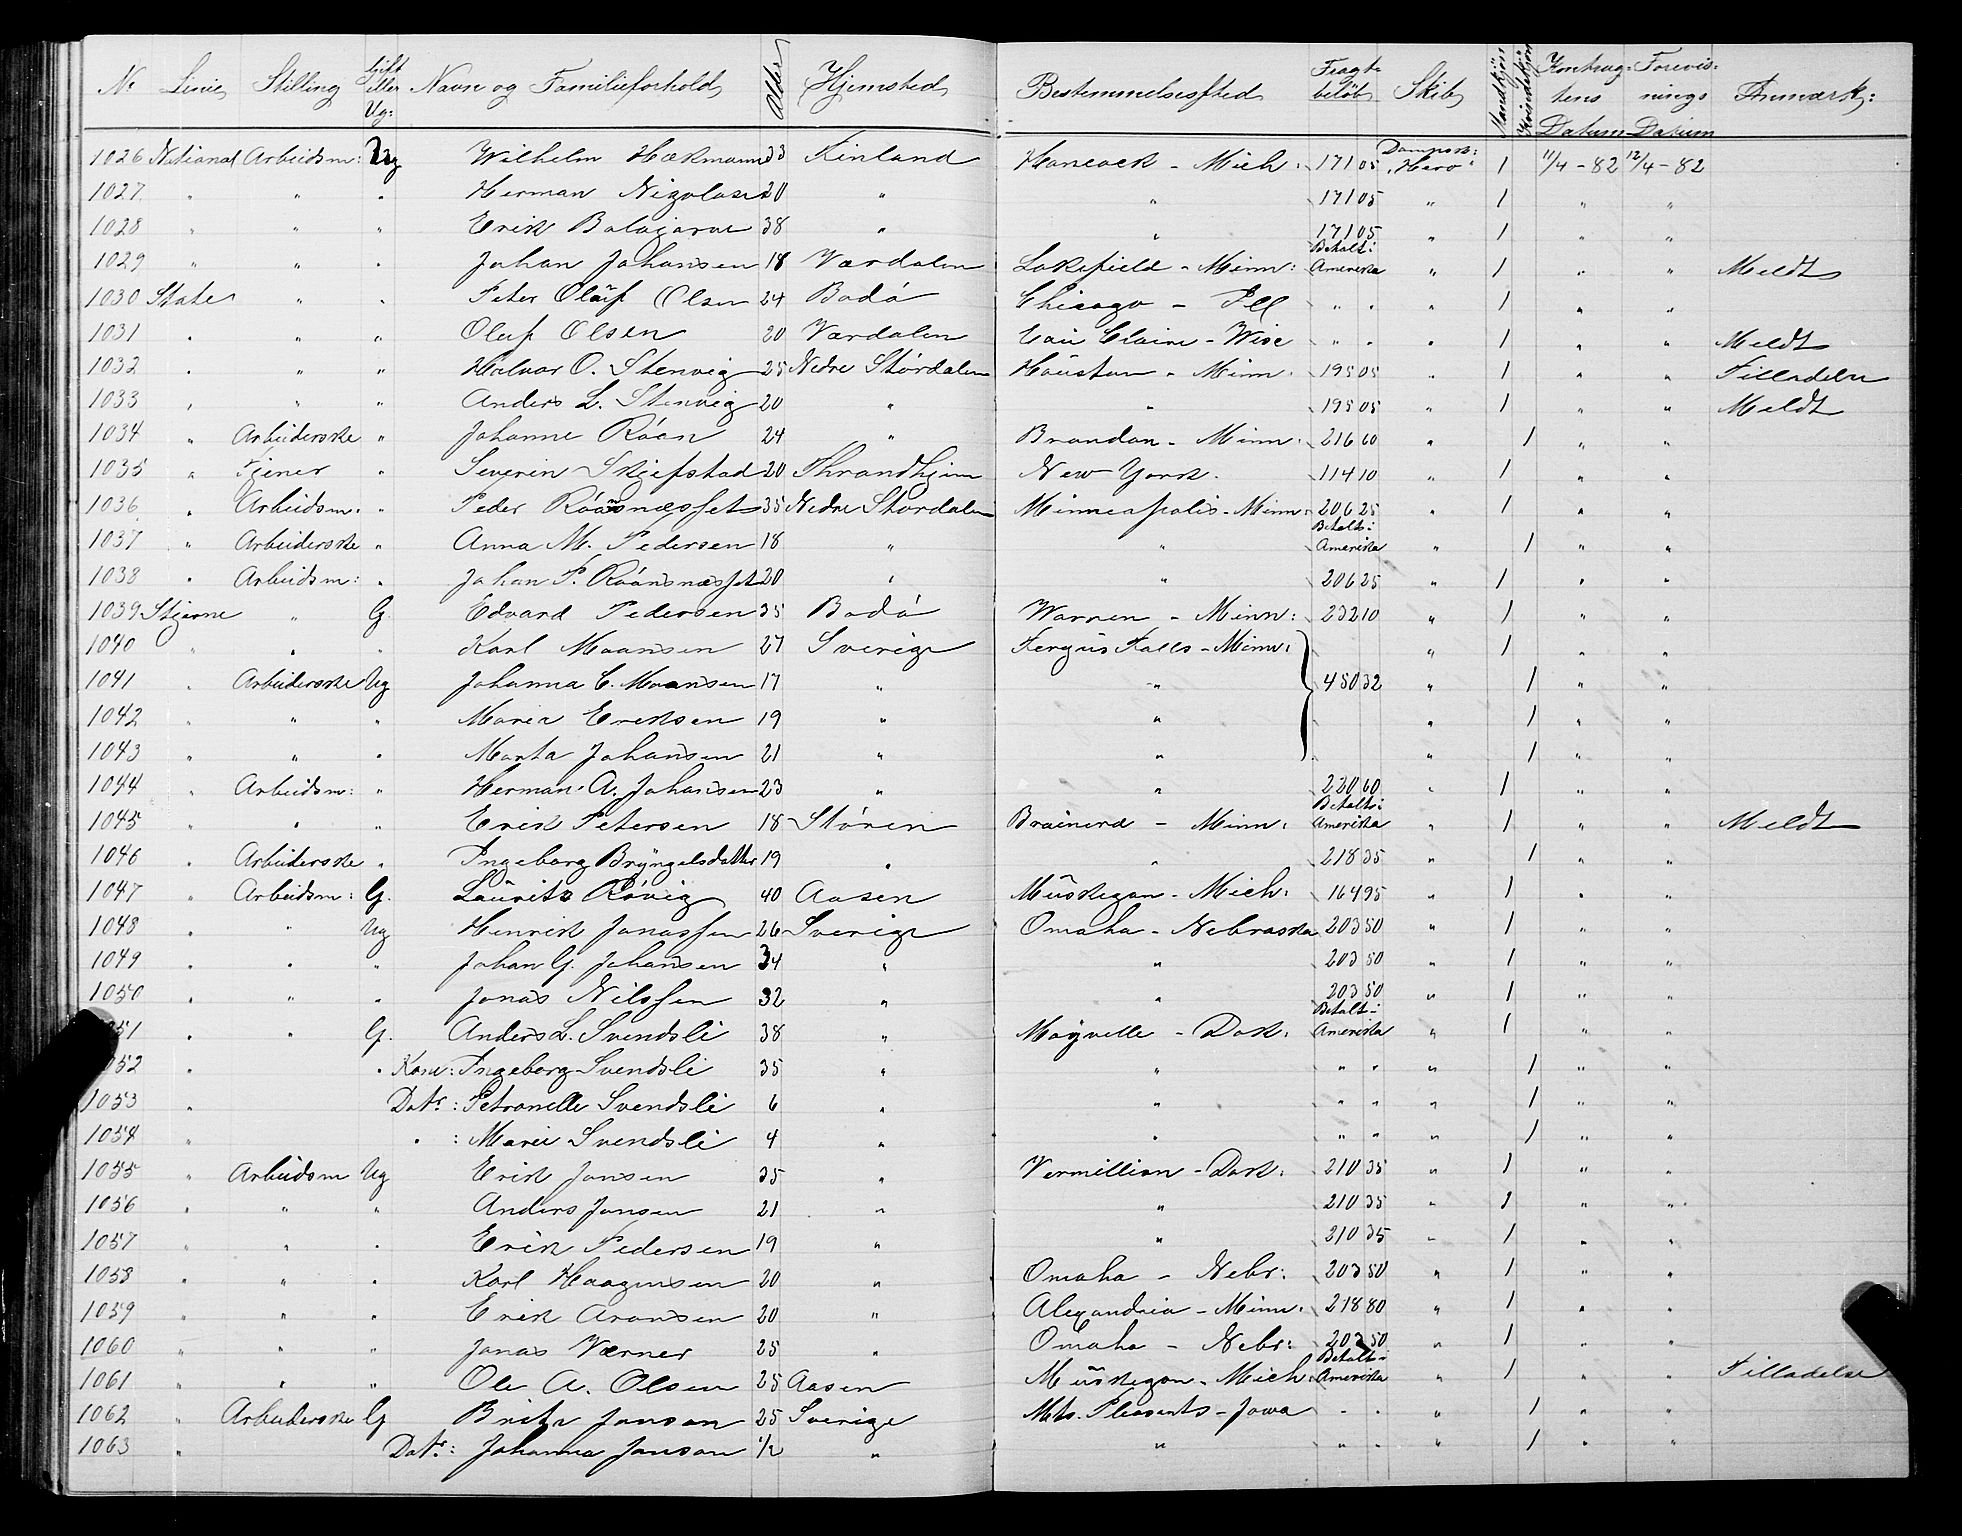 No Linie Stilling Gift eller Ug: Navn og Familieforhold Alder Hjemsted Bestemmelsessted Fragtbeløb Skib Mandkjøn Kvindekjøn Kontraktens Datum Forevisnings Datum Anmærk:
1026 National Arbeidsm: Ug Wilhelm Hækmann 33 Finland Hancock - Mich: 171 05 Dampsk: "Hero" 1 11/4 - 82 12/4 - 82
1027 " " " Herman Nigolasen 20 " " 171 05 " 1 " "
1028 " " " Erik Balajarvi 38 " " 171 05 " 1 " "
1029 " " " Johan Johansen 18 Værdalen Lakefield - Minn: Betalt i Amerika " 1 " " Meldt
1030 State " " Peter Olaüf Olsen 24 Bodø Chicago - Ill " " " 1 " "
1031 " " " Oluf Olsen 20 Værdalen Eau Claire - Wisc " " " 1 " " Meldt
1032 " " " Halvor O. Stenvig 25 Nedre Størdalen Houston - Minn. 195 05 " 1 " " Tilladelse
1033 " " " Anders L. Stenvig 20 " " 195 05 " 1 " " Meldt
1034 " Arbeiderske " Johanne Røan 24 " Brandon - Minn: 216 60 " 1 " "
1035 " Tjener " Severin Skjefstad 20 Thrandhjem New York. 114 10 " 1 " "
1036 " Arbeidsm. " Peder Røansnæsset 35 Nedre Størdalen Minneapolis - Minn: 206 25 " 1 " "
1037 " Arbeiderske " Anna M. Pedersen 18 " " Betalt i Amerika " 1 " "
1038 " Arbeidsm: " Johan P. Røansnæsset 20 " " 206 25 " 1 " "
1039 Stjerne " G. Edvard Pedersen 35 Bodø Warren - Minn: 232 10 " 1 " "
1040 " " " Karl Moansen 27 Sverige Fergus Falls - Minn: " 1 " "
1041 " Arbeiderske Ug Johanna C. Moansen 17 " " 450 32 " 1 " "
1042 " " " Maria Eriksen 19 " " " 1 " "
1043 " " " Marta Johansen 21 " " " 1 " "
1044 " Arbeidsm: " Herman A. Johansen 23 " " 220 60 " 1 " "
1045 " " " Erik Petersen 18 Støren Brainerd - Minn. Betalt i Amerika " 1 " " Meldt
1046 " Arbeiderske " Ingeborg Bryngelsdatter 19 " " 218 35 " 1 " "
1047 " Arbeidsm: G. Laurits Røvig 40 Aasen Muskegon - Mich: 164 95 " 1 " "
1048 " " Ug Henrik Jonassen 26 Sverige Omaha - Nebraska 203 50 " 1 " "
1049 " " " Johan G. Johansen 34 " " 203 50 " 1 " "
1050 " " " Jonas Nilssen 32 " " 203 50 " 1 " "
1051 " " G. Anders L. Svendsli 38 " Mayville - Dak: Betalt i Amerika " 1 " "
1052 " " Kone: Ingeborg Svendsli 35 " " " " " 1 " "
1053 " Datr: Petronelle Svendsli 6 " " " " " 1 " "
1054 " " : Marie Svendsli 4 " " " " " 1 " "
1055 " Arbeidsm Ug Erik Jonsen 35 " Vermillion - Dak: 210 35 " 1 " "
1056 " " " Anders Jonsen 21 " " 210 35 " 1 " "
1057 " " " Erik Pedersen 19 " " 210 35 " 1 " "
1058 " " " Karl Haagensen 20 " Omaha - Nebr: 203 50 " 1 " "
1059 " " " Erik Aronsen 20 " Alexandria - Minn. 218 80 " 1 " "
1060 " " " Jonas Værner 25 " Omaha - Nebr: 203 50 " 1 " "
1061 " " " Ole A. Olsen 25 Aasen Muskegon - Mich: Betalt i Amerika " 1 " " Tilladelse
1062 " Arbeiderske G Brita Jonson 25 Sverige Mts. Pleasents - Jowa " " " 1 " "
1063 " Datr: Johanna Jonson 1/2 " " " " " 1 " "